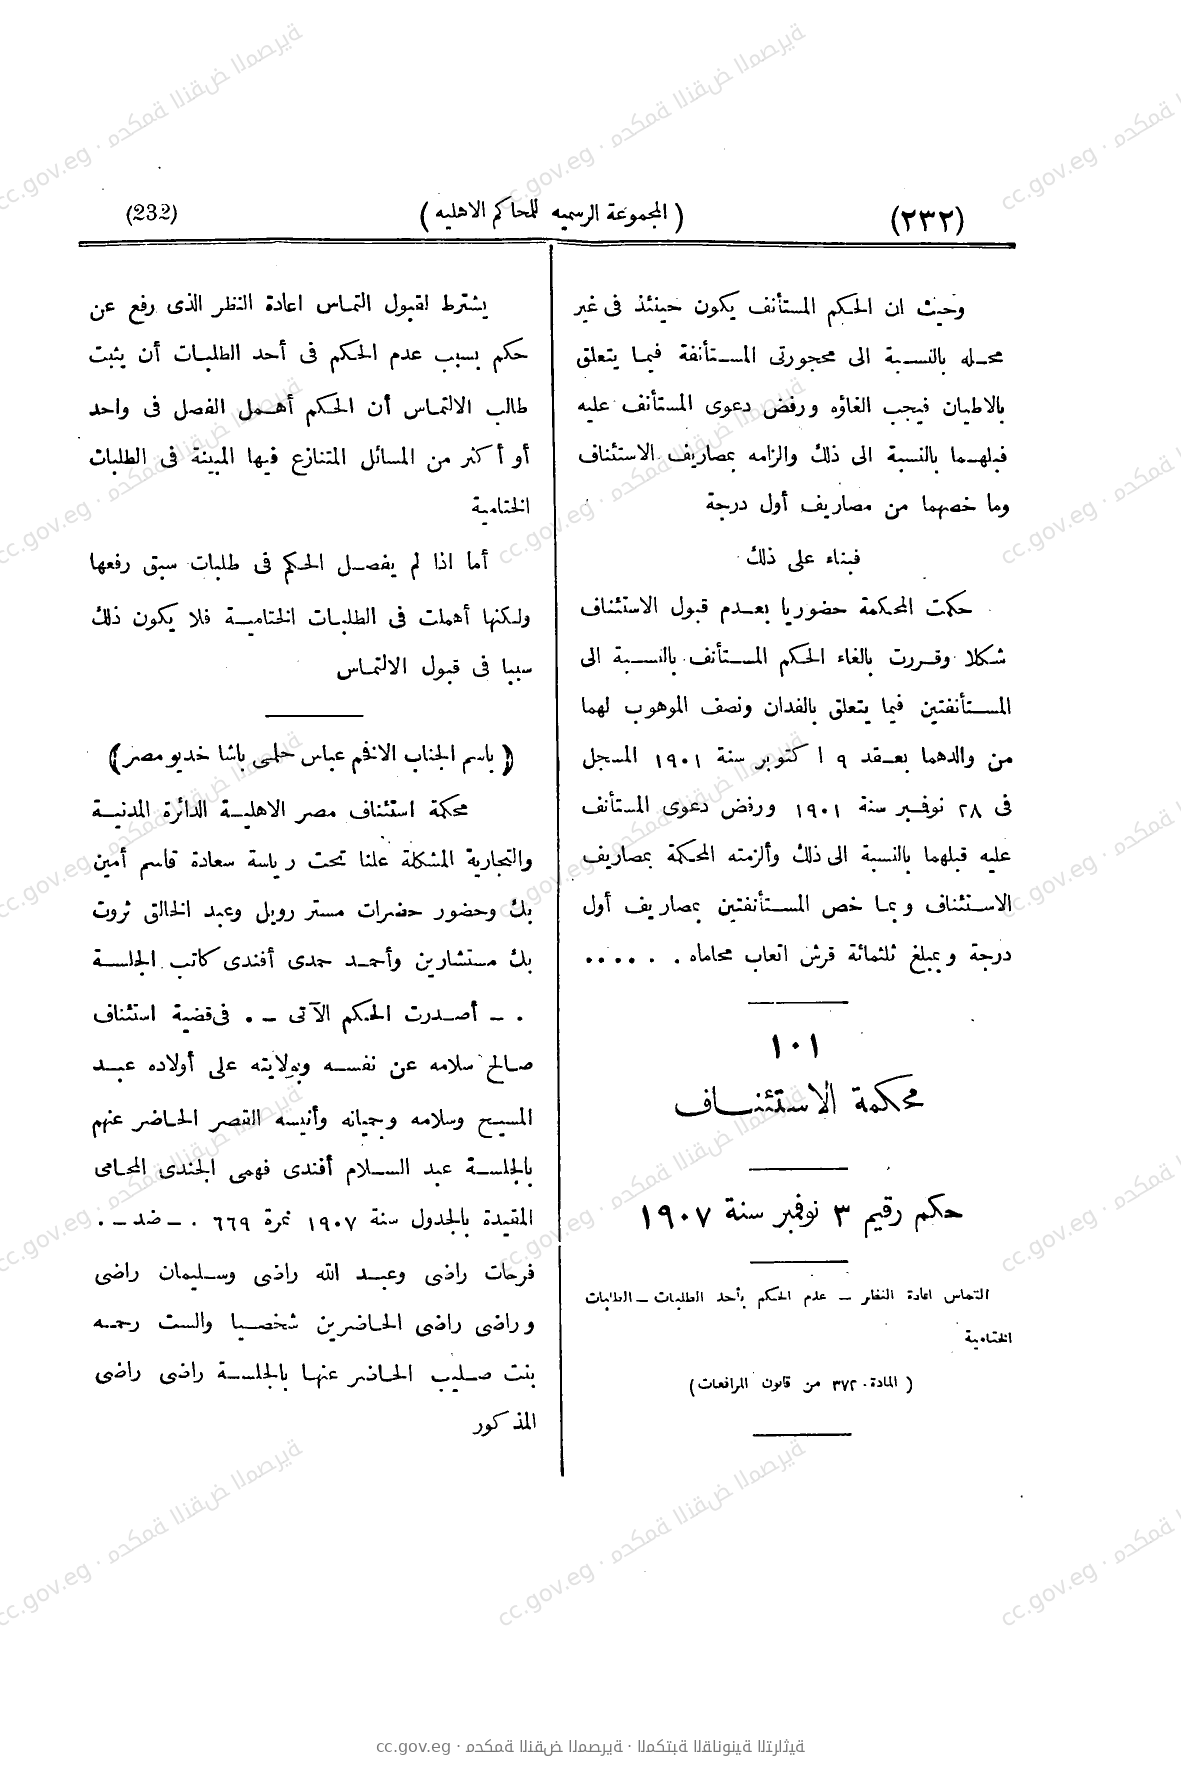 (٢٣٢)
(المجموعة الرسميه للمحاكم الاهليه)
(232)
وحيث ان الحكم المستأنف يكون حينئذ فى غير
محله بالنسبة الى محجورتى المستأنفة فيما يتعلق
بالاطيان فيجب الغاؤه ورفض دعوى المستأنف عليه
قبلهما بالنسبة الى ذلك والزامه بمصاريف الاستئناف
وما خصهما من مصاريف أول درجة
فبناء على ذلك
حكمت المحكمة حضوريا بعدم قبول الاستئناف
شكلا وقررت بالغاء الحكم المستأنف بالنسبة الى
المستأنفتين فيما يتعلق بالفدان ونصف الموهوب لهما
من والدهما بعقد ٩ اكتوبر سنة ١٩٠١ المسجل
فى ٢٨ نوفمبر سنة ١٩٠١ ورفض دعوى المستأنف
عليه قبلهما بالنسبة الى ذلك وألزمته المحكمة بمصاريف
الاستئناف وبما خص المستأنفتين بمصاريف أول
درجة وبمبلغ ثلثمائة قرش اتعاب محاماه . . . . . .
١٠١
محكمة الاستئناف
حكم رقيم ٣ نوفمبر سنة ١٩٠٧
التماس اعادة النظر – عدم الحكم بأحد الطلبات – الطلبات
الختامية
(المادة ٣٧٢ من قانون المرافعات)
يشترط لقبول التماس اعادة النظر الذى رفع عن
حكم بسبب عدم الحكم فى أحد الطلبات أن يثبت
طالب الالتماس أن الحكم أهمل الفصل فى واحد
أو أكثر من المسائل المتنازع فيها المبينة فى الطلبات
الختامية
أما اذا لم يفصل الحكم فى طلبات سبق رفعها
ولكنها أهملت فى الطلبات الختامية فلا يكون ذلك
سببا فى قبول الالتماس
(باسم الجناب الافخم عباس حلمى باشا خديو مصر)
محكمة استئناف مصر الاهلية الدائرة المدنية
والتجارية المشكلة علنا تحت رياسة سعادة قاسم أمين
بك وحضور حضرات مستر رويل وعبد الخالق ثروت
بك مستشارين وأحمد حمدى أفندى كاتب الجلسة
. – أصدرت الحكم الآتى – . فى قضية استئناف
صالح سلامه عن نفسه وبولايته على أولاده عبد
المسيح وسلامه وجميانه وأنيسه القصر الحاضر عنهم
بالجلسة عبد السلام أفندى فهمى الجندى المحامى
المقيدة بالجدول سنة ١٩٠٧ نمرة ٦٦٩ . – ضد – .
فرحات راضى وعبد الله راضى وسليمان راضى
وراضى راضى الحاضرين شخصيا والست رحمه
بنت صليب الحاضر عنها بالجلسة راضى راضى
المذكور
cc.gov.eg · محكمة النقض المصرية · المكتبة القانونية التراثية